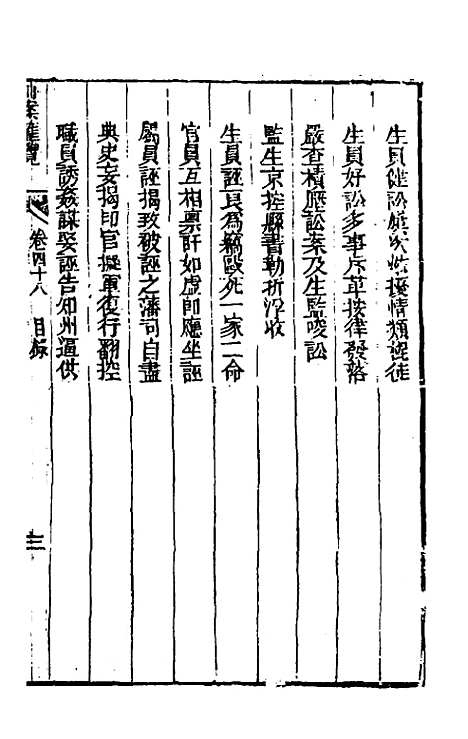 生員健訟屢次擾情類棍徒
生員好訟多事斥革按律發落
嚴查積慝訟案及生監唆訟
監生京控縣書勒折浮收
生員誣良為竊毆死一家二命
官員互相稟訐如虛即應坐誣
屬員誣揭致被誣之藩司自盡
典史妄揭印官擬軍復行翻控
職員誘姦謀娶誣告知州逼供
刑案匯覽 卷四十八 目錄 三